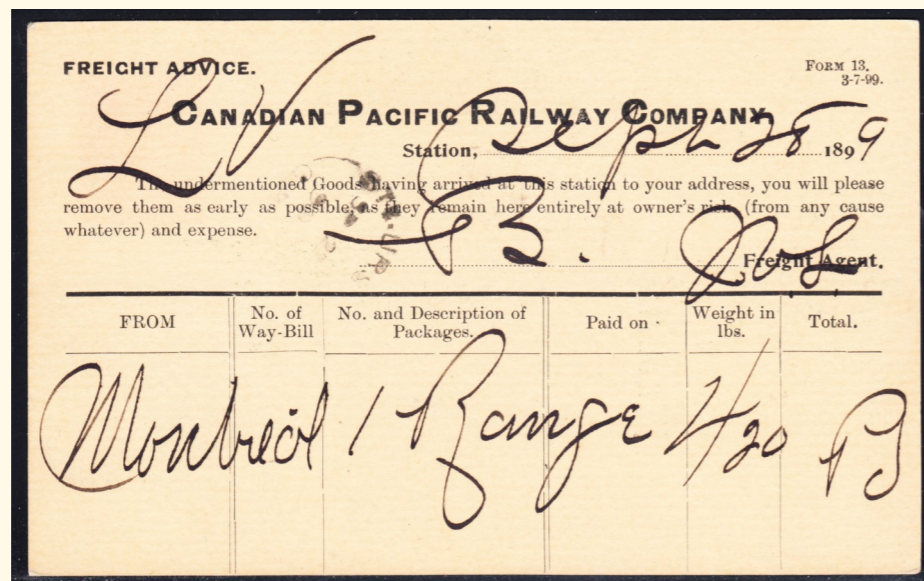 FREIGHT ADVICE.
FORM 13.
3-7-99.
LV
CANADIAN PACIFIC RAILWAY COMPANY
Station, Sept 28 1899
The undermentioned Goods having arrived at this station to your address, you will please
remove them as early as possible, as they remain here entirely at owner's risk (from any cause
whatever) and expense.
B.
Freight Agent.
FROM No. of Way-Bill No. and Description of Packages. Paid on Weight in lbs. Total.
Montreal 1 Range 420